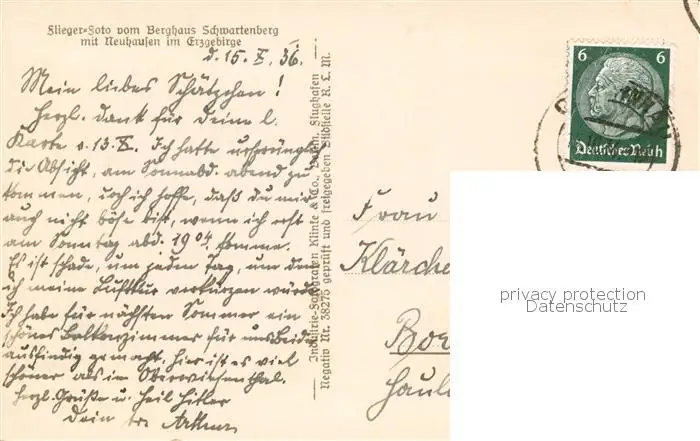 Flieger-Foto vom Berghaus Schwartenberg
mit Neuhausen im Erzgebirge
d. 15. X. 36.
Mein liebes Schätzchen!
Herzl. Dank für Deine l.
Karte v. 13. X. Ich hatte ursprünglich
die Absicht, am Sonnabd. abend zu
kommen, doch ich hoffe, daß Du mir
auch nicht böse bist, wenn ich erst
am Sonntag abd. 19 04 komme.
Es ist schade, um jeden Tag, um den
ich meine Luftkur verkürzen würde
Ich habe für nächsten Sommer ein
schönes Balkonzimmer für uns Beide
ausfindig gemacht, hier ist es viel
schöner als in Oberwiesenthal.
Herzl. Grüße u. Heil Hitler
Dein
Industrie-Fotografen Klinke & Co., Berlin, Flughafen
Negativ Nr. 38275 geprüft und freigegeben Bildstelle R. L. M.
6 6
Deutsches Reich
Frau
Klärche
Bor
privacy protection
Datenschutz